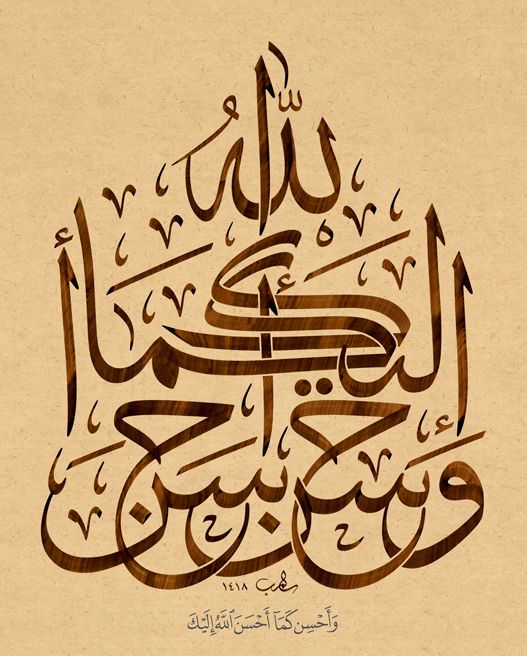 وأحسن كما أحسن الله إليك
١٤١٨
وَأَحْسِن كَمَآ أَحْسَنَ ٱللَّهُ إِلَيْكَ